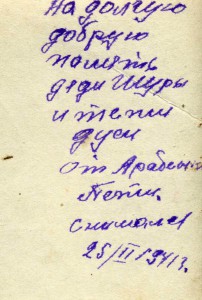 На долгую
добрую
память
дяди Шуры
и тети
дуси
от Арабен
Пети.
снимался
25/II 1941 г.